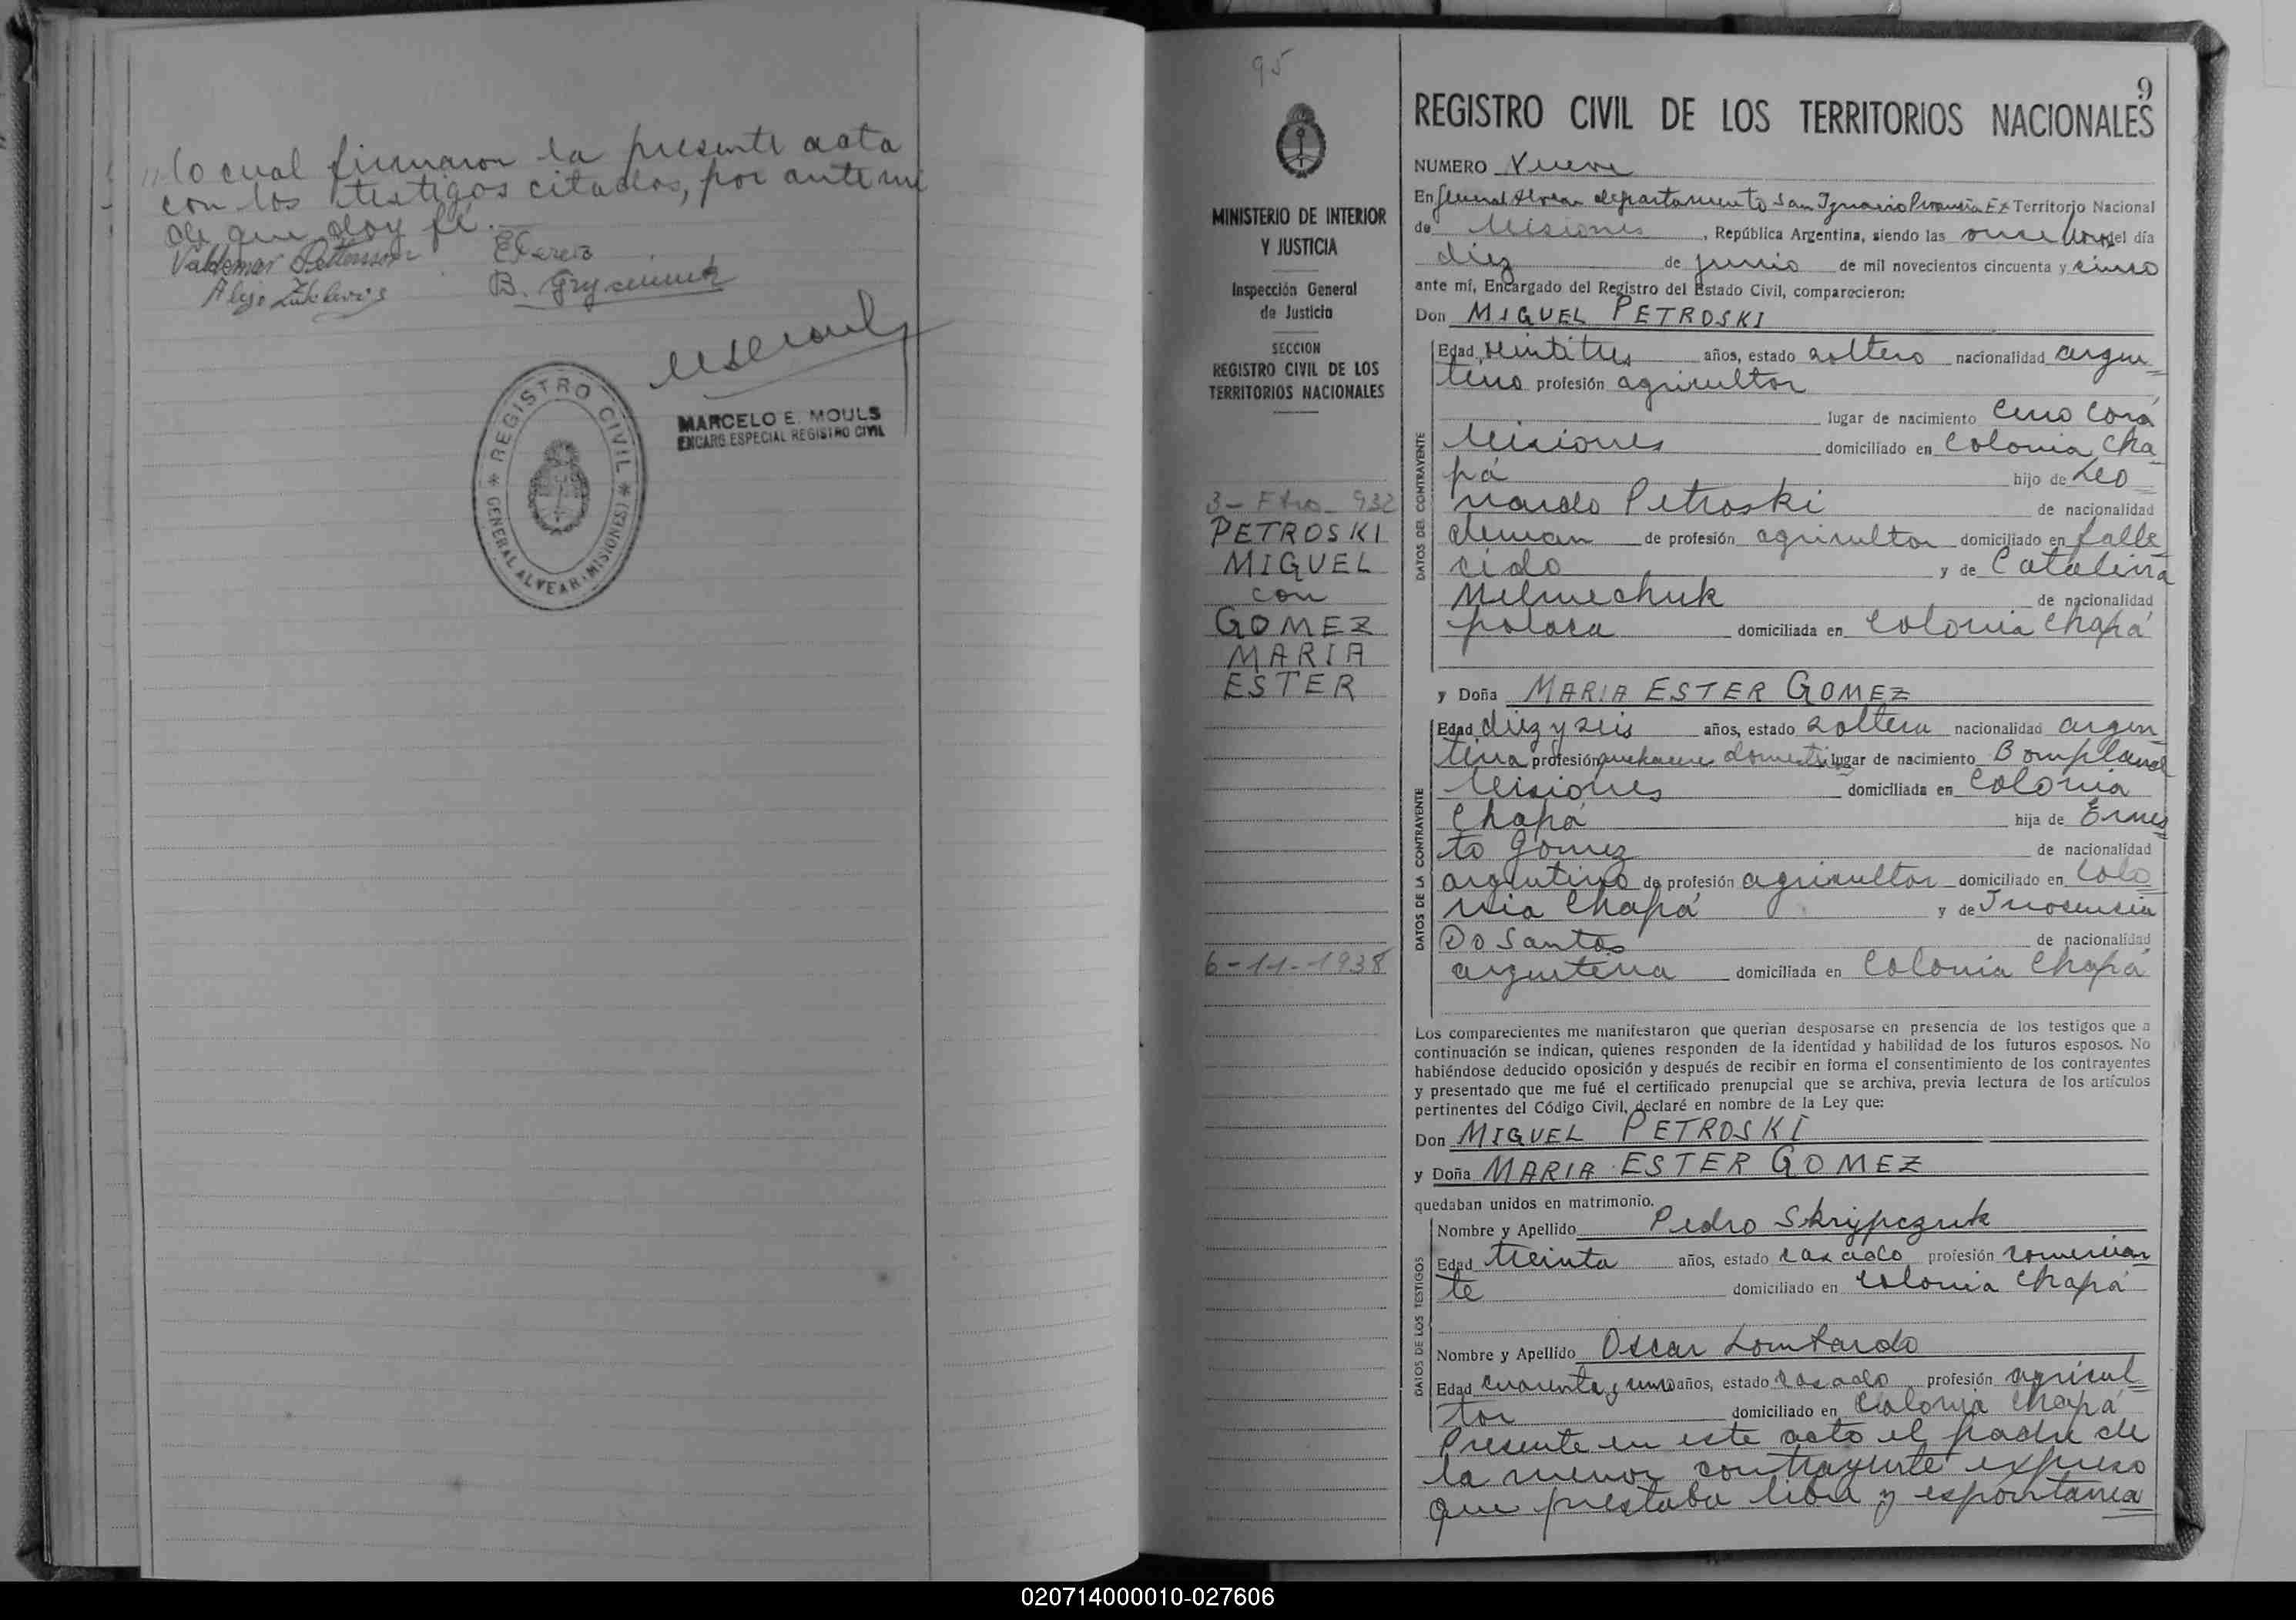 lo cual firmaron la presente acta
con los testigos citados, por ante mi
de que doy fé.
Valdemar Pettersson
B. Gryciuuk
MARCELO E. MOULS
ENCARG. ESPECIAL REGISTRO CIVIL
* REGISTRO CIVIL *
GENERAL ALVEAR (MISIONES)
95
MINISTERIO DE INTERIOR
Y JUSTICIA
Inspección General
de Justicia
SECCION
REGISTRO CIVIL DE LOS
TERRITORIOS NACIONALES
3 - Ebro - 932
PETROSKI
MIGUEL
con
GOMEZ
MARIA
ESTER
6-11-1938
9
REGISTRO CIVIL DE LOS TERRITORIOS NACIONALES
NUMERO Nueve
En General Alvear departamento San Ignacio Provincia Ex Territorio Nacional
de Misiones, República Argentina, siendo las once horas del día
diez de junio de mil novecientos cincuenta y cinco
ante mí, Encargado del Registro del Estado Civil, comparecieron:
Don MIGUEL PETROSKI
DATOS DEL CONTRAYENTE
Edad veintitres años, estado soltero nacionalidad argen
tino profesión agricultor
lugar de nacimiento Cerro Corá
Misiones domiciliado en Colonia Cha
pá hijo de Leo
nardo Petroski de nacionalidad
aleman de profesión agricultor domiciliado en falle
cido y de Catalina
Melmechuk de nacionalidad
polaca domiciliada en Colonia Chapá
y Doña MARIA ESTER GOMEZ
DATOS DE LA CONTRAYENTE
Edad diez y seis años, estado soltera nacionalidad argen
tina profesión quehacere domestico lugar de nacimiento Bompland
Misiones domiciliada en Colonia
Chapá hija de Ernes
to Gomez de nacionalidad
argentino de profesión agricultor domiciliado en Colo
nia Chapá y de Inosensia
Do Santos de nacionalidad
argentina domiciliada en Colonia Chapá
Los comparecientes me manifestaron que querían desposarse en presencia de los testigos que a
continuación se indican, quienes responden de la identidad y habilidad de los futuros esposos. No
habiéndose deducido oposición y después de recibir en forma el consentimiento de los contrayentes
y presentado que me fué el certificado prenupcial que se archiva, previa lectura de los artículos
pertinentes del Código Civil, declaré en nombre de la Ley que:
Don MIGUEL PETROSKI
y Doña MARIA ESTER GOMEZ
quedaban unidos en matrimonio.
DATOS DE LOS TESTIGOS
Nombre y Apellido Pedro Skrypczuk
Edad treinta años, estado casado profesión comercian
te domiciliado en Colonia Chapá
Nombre y Apellido Oscar Lombardo
Edad cuarenta y uno años, estado casado profesión agricul
tor domiciliado en Colonia Chapá
Presente en este acto el padre de
la menor contrayente expreso
que prestaba libre y espontanea
020714000010-027606